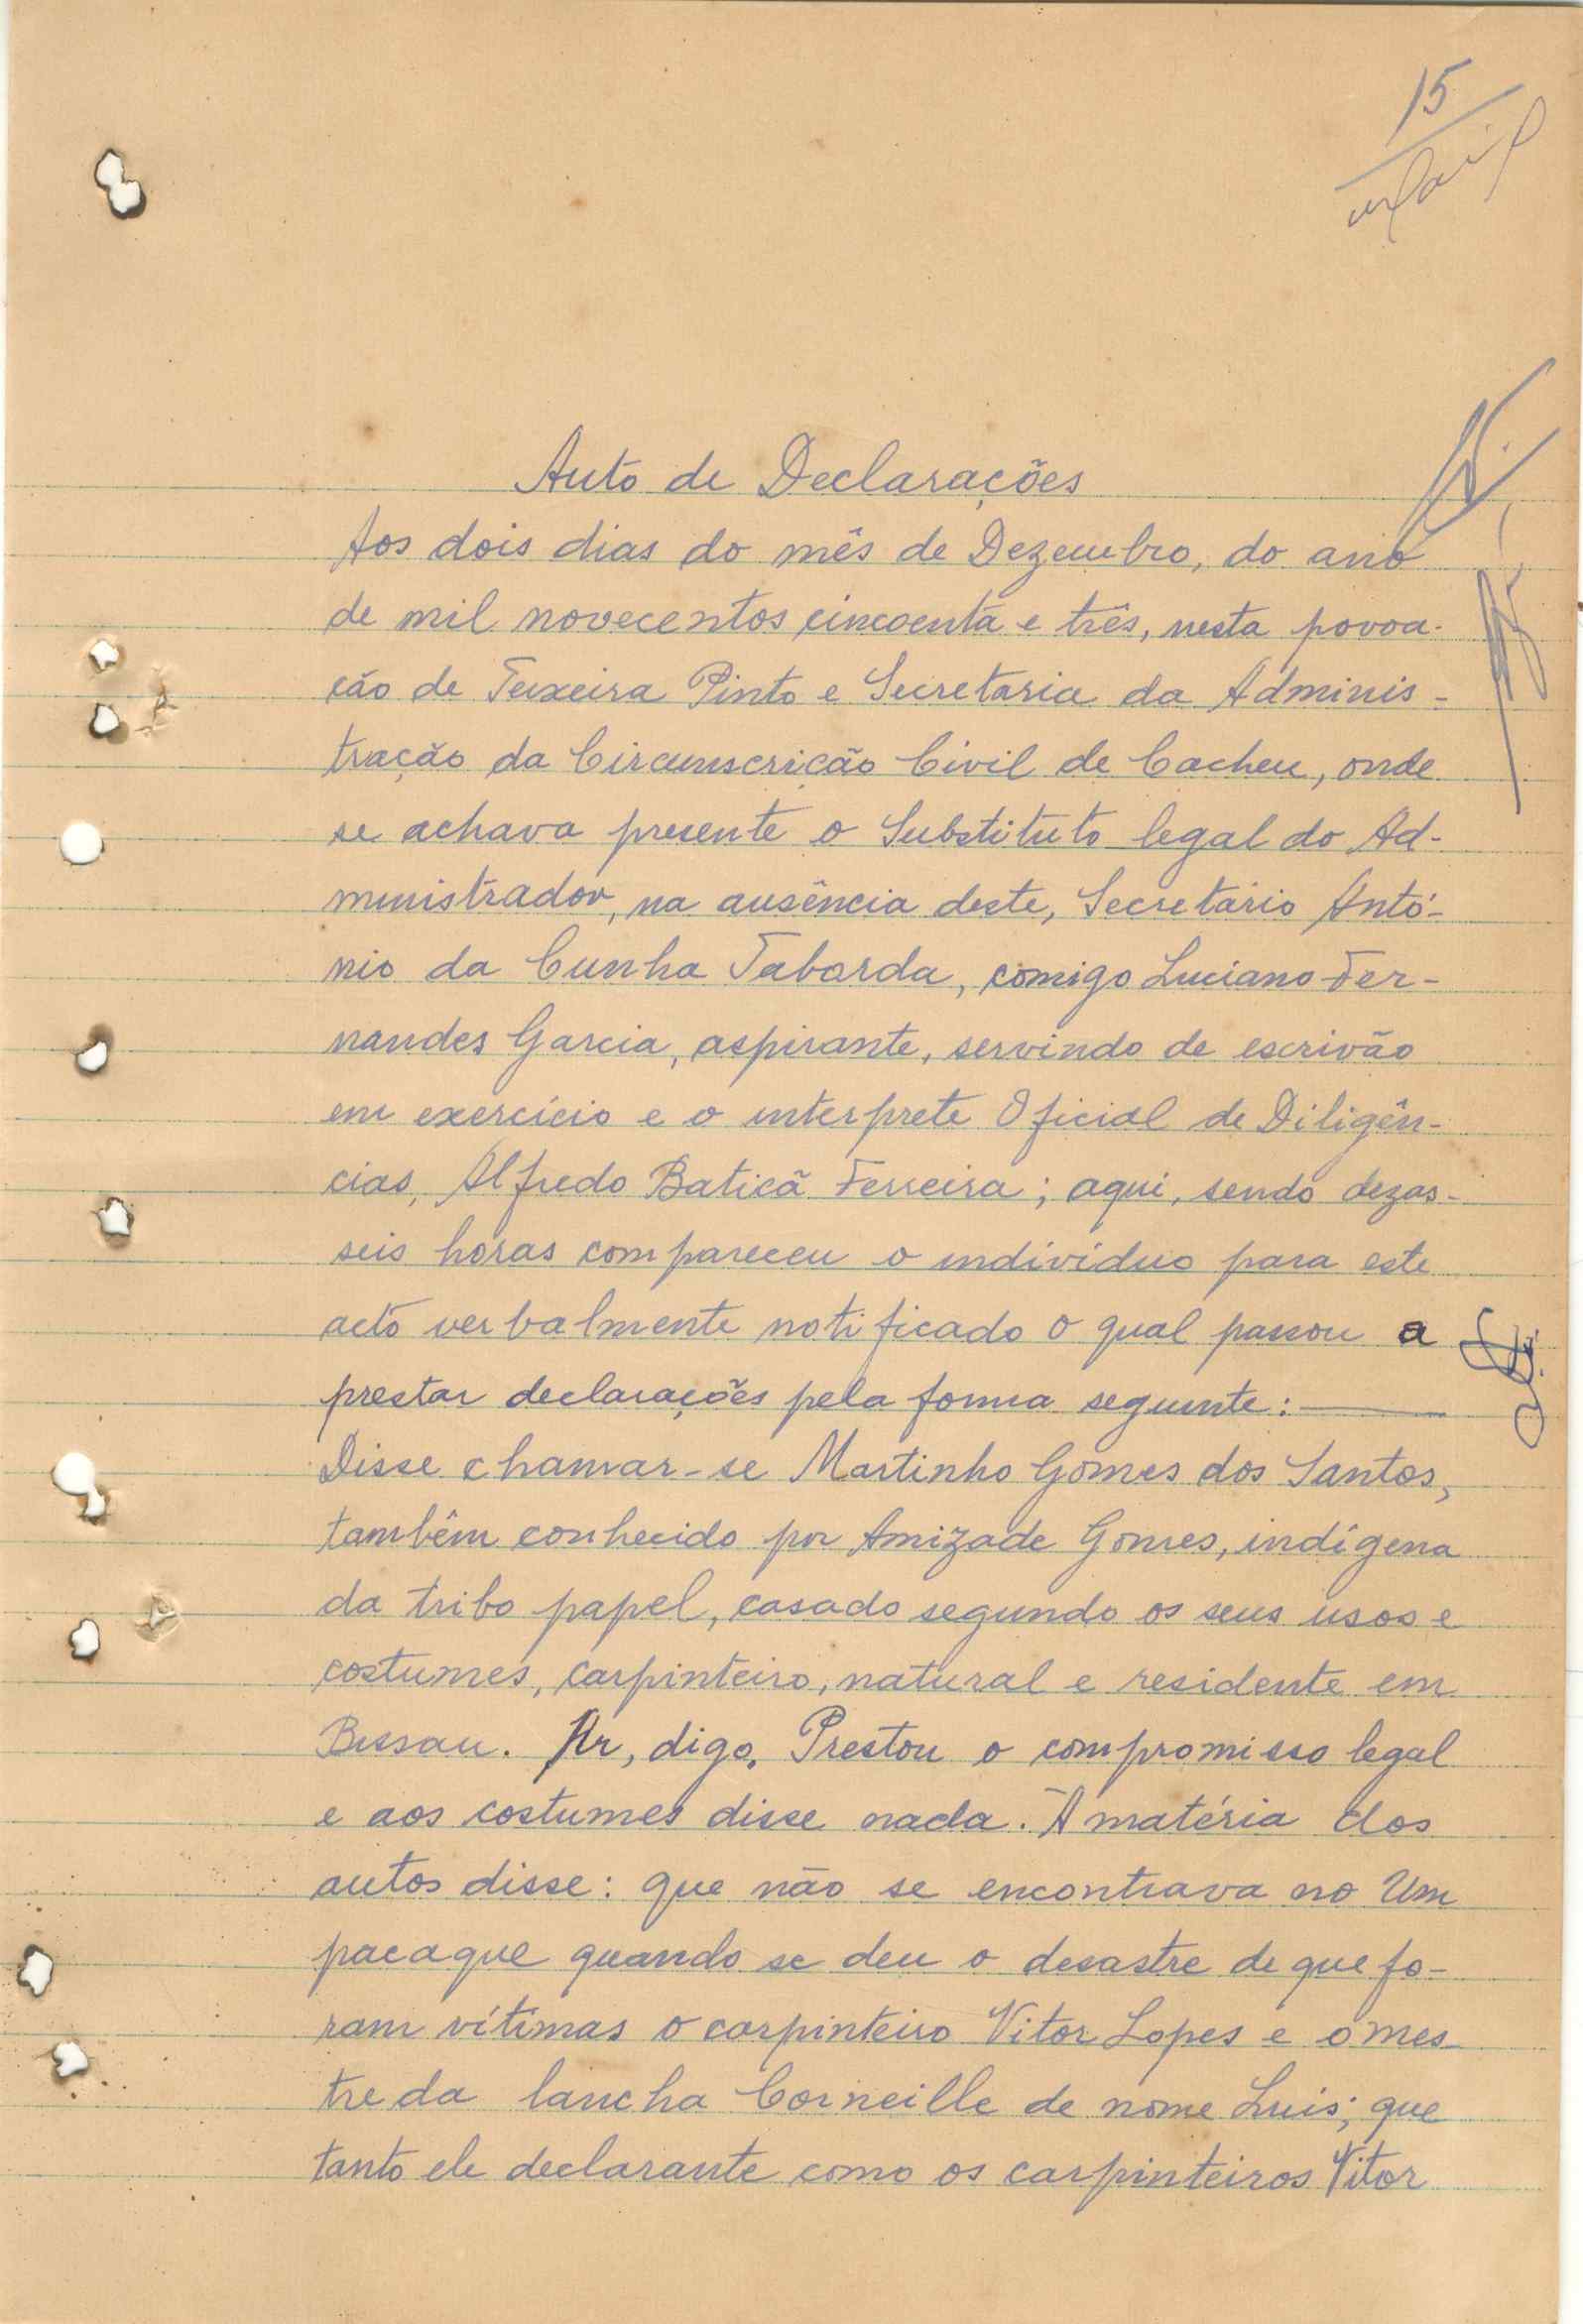 15
Auto de Declarações
Aos dois dias do mês de Dezembro, do ano
de mil novecentos cincoenta e três, nesta povoa-
ção de Teixeira Pinto e Secretaria da Adminis-
tração da Circunscrição Civil de Cacheu, onde
se achava presente o Substituto legal do Ad-
ministrador, na ausência deste, Secretário Antó-
nio da Cunha Taborda, comigo Luciano Fer-
nandes Garcia, aspirante, servindo de escrivão
em exercício e o interprete Oficial de Diligên-
cias, Alfredo Baticã Ferreira; aqui, sendo dezas-
seis horas compareceu o indivíduo para este
acto verbalmente notificado o qual passou a
prestar declarações pela forma seguinte:
Disse chamar-se Martinho Gomes dos Santos,
também conhecido por Amizade Gomes, indígena
da tribo papel, casado segundo os seus usos e
costumes, carpinteiro, natural e residente em
Bissau. Ar, digo, Prestou o compromisso legal
e aos costumes disse nada. À matéria dos
autos disse: que não se encontrava no Um
pacaque quando se deu o desastre de que fo-
ram vítimas o carpinteiro Vitor Lopes e o mes-
tre da lancha Corneille de nome Luis; que
tanto ele declarante como os carpinteiros Vitor